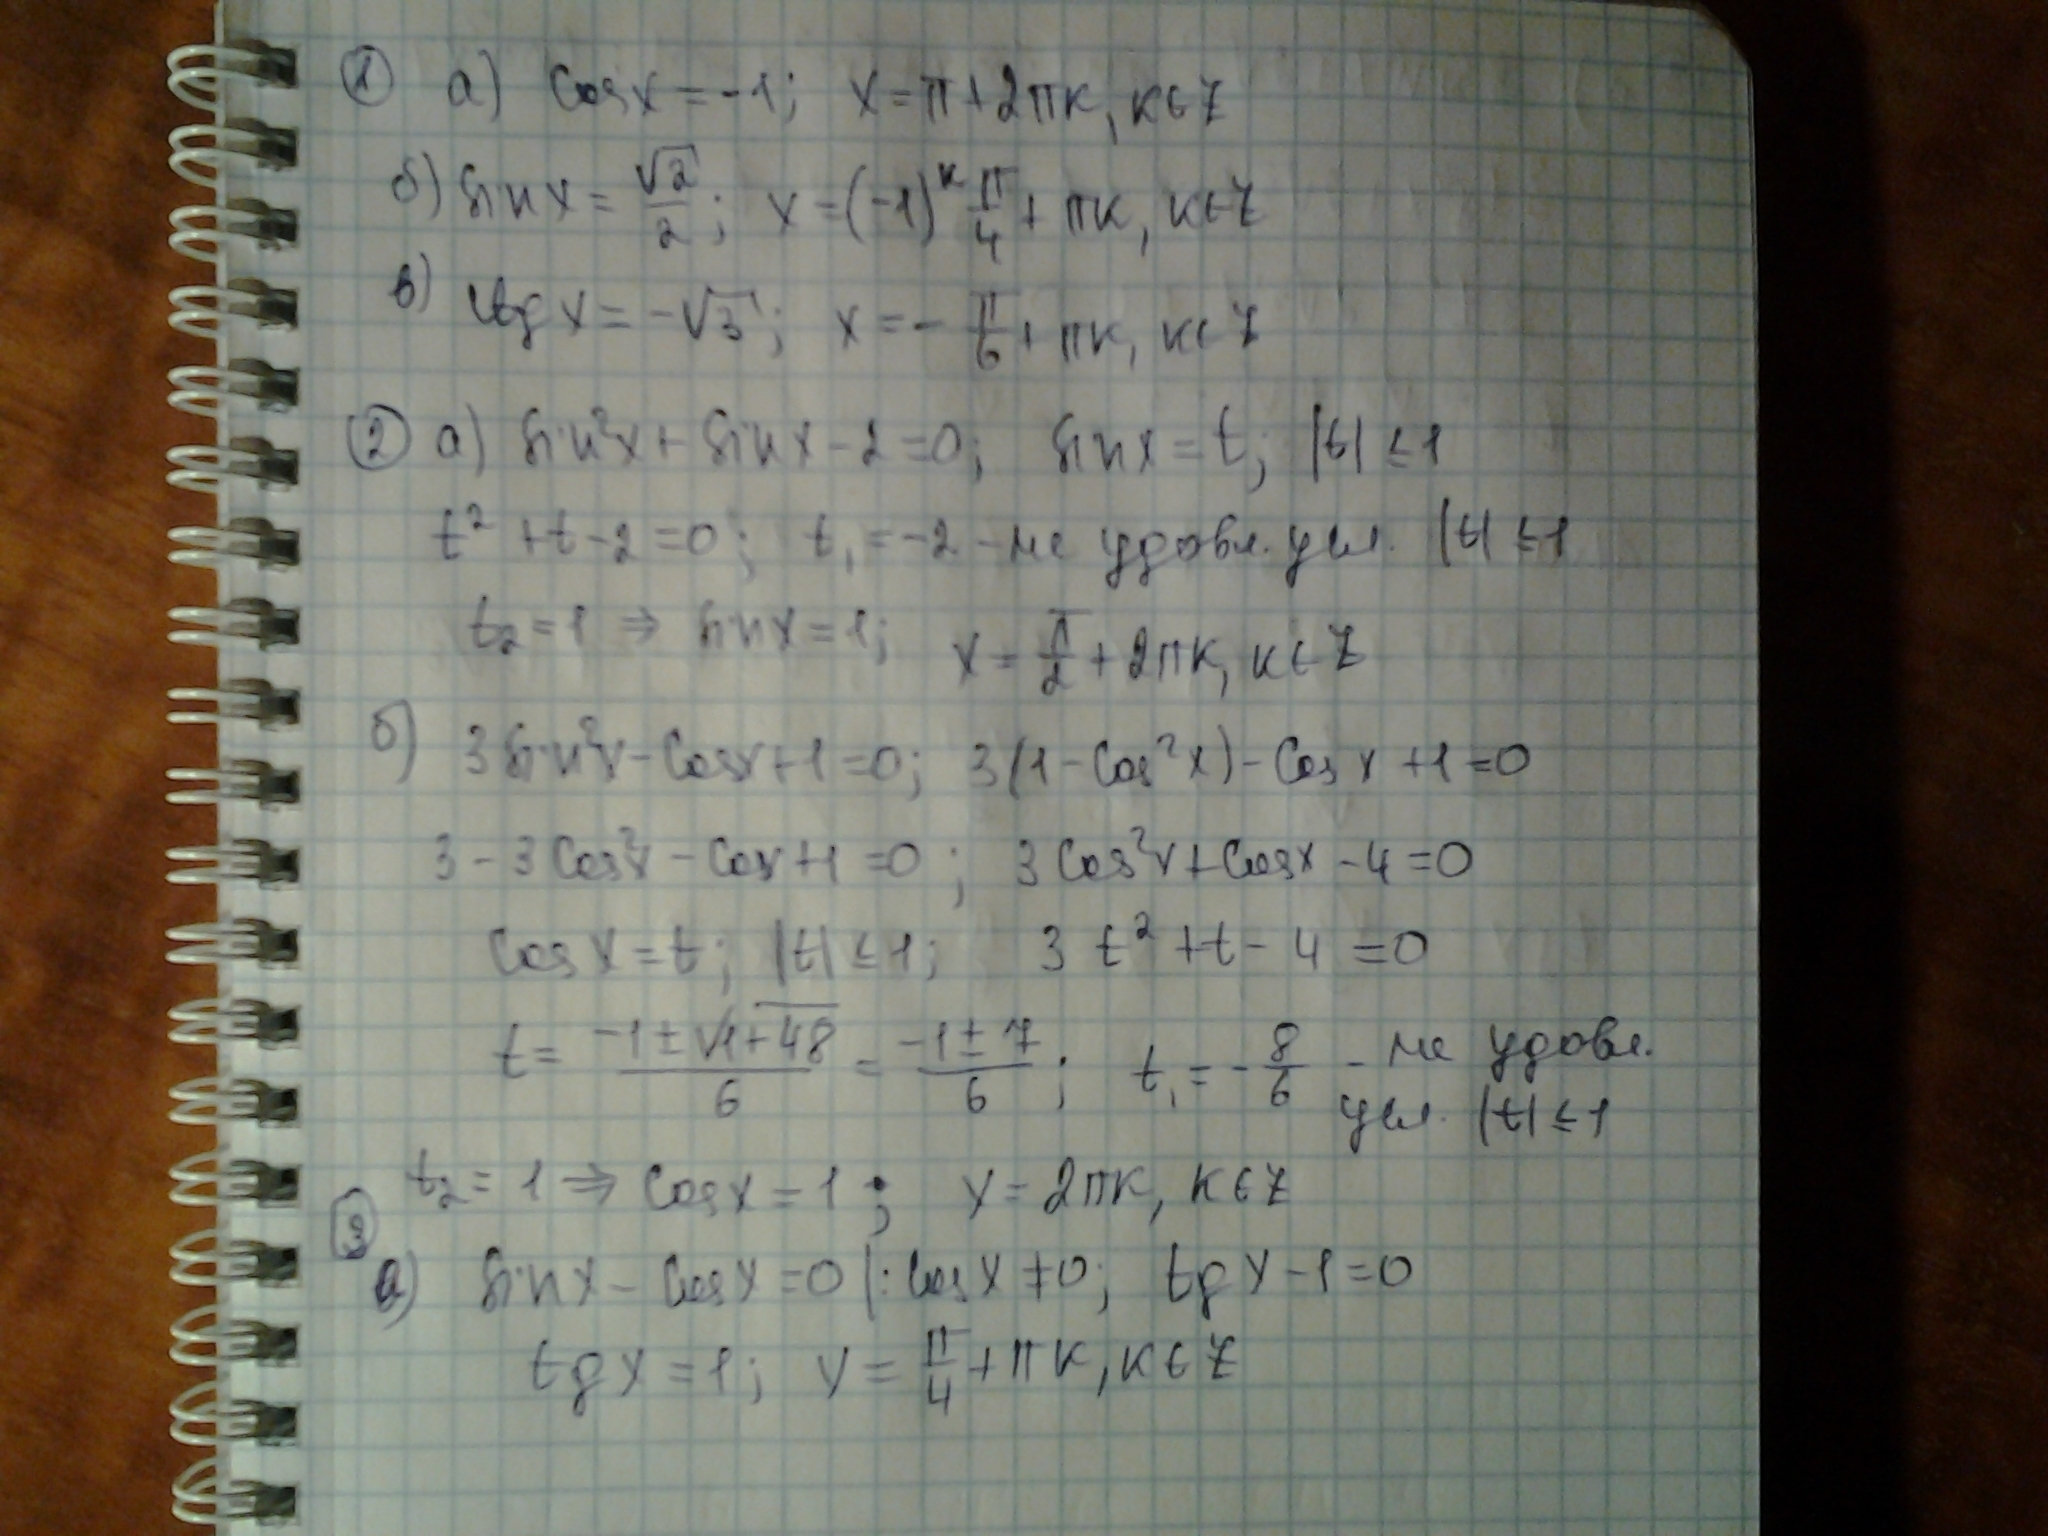 ① а) cos x = -1; x = π + 2πк, к∈Z
б) sin x = √2/2; x = (-1)^к π/4 + πк, к∈Z
в) ctg x = -√3; x = -π/6 + πк, к∈Z
② а) sin²x + sin x - 2 = 0; sin x = t; |t| ≤ 1
t² + t - 2 = 0; t₁ = -2 - не удовл. усл. |t| ≤ 1
t₂ = 1 ⇒ sin x = 1; x = π/2 + 2πк, к∈Z
б) 3sin²x - cos x + 1 = 0; 3(1 - cos²x) - cos x + 1 = 0
3 - 3cos²x - cos x + 1 = 0; 3cos²x + cos x - 4 = 0
cos x = t; |t| ≤ 1; 3t² + t - 4 = 0
t = (-1 ± √(1+48))/6 = (-1 ± 7)/6; t₁ = -8/6 - не удовл.
усл. |t| ≤ 1
t₂ = 1 ⇒ cos x = 1; x = 2πк, к∈Z
③
а) sin x - cos x = 0 |: cos x ≠ 0; tg x - 1 = 0
tg x = 1; x = π/4 + πк, к∈Z